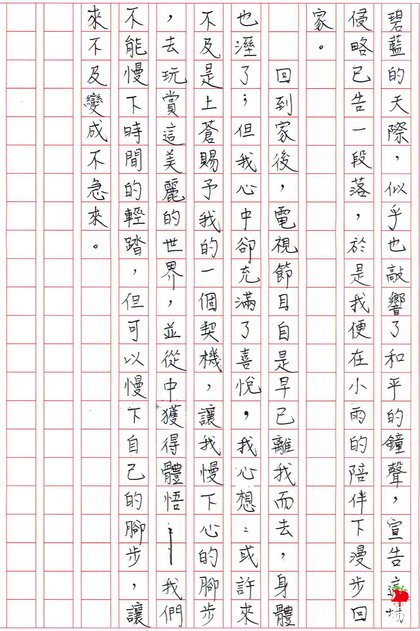 碧藍的天際，似乎也敲響了和平的鐘聲，宣告這場
侵略已告一段落，於是我便在小雨的陪伴下漫步回
家。
回到家後，電視節目自是早已離我而去，身體
也溼了；但我心中卻充滿了喜悅，我心想：或許來
不及是上蒼賜予我的一個契機，讓我慢下心的腳步
，去玩賞這美麗的世界，並從中獲得體悟——我們
不能慢下時間的輕踏，但可以慢下自己的腳步，讓
來不及變成不急來。